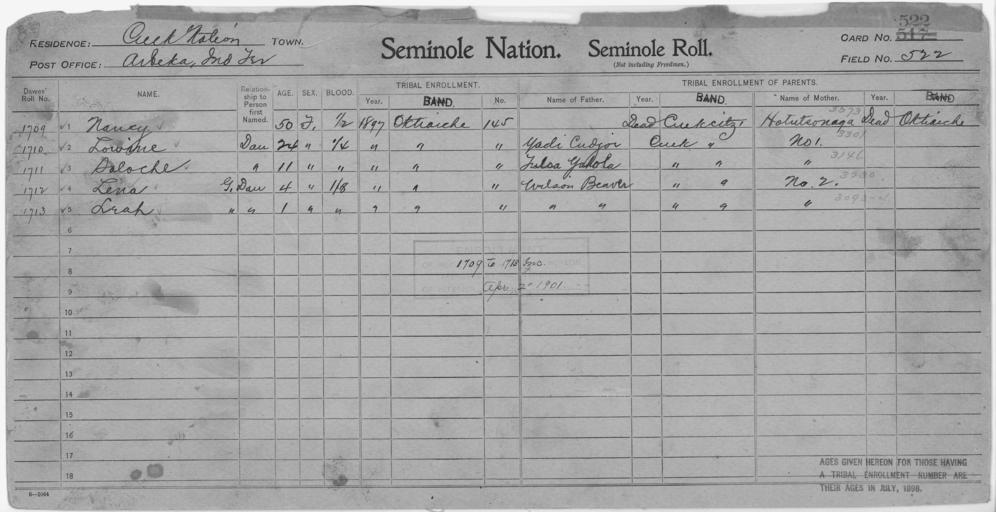 522
517
RESIDENCE: Creek Nation TOWN.
POST OFFICE: Arbeka, Ind Ter
Seminole Nation. Seminole Roll.
(Not including Freedmen.)
CARD NO.
FIELD NO. 522
Dawes' Roll No. NAME. Relationship to Person first Named. AGE. SEX. BLOOD. TRIBAL ENROLLMENT. TRIBAL ENROLLMENT OF PARENTS.
Year. BAND. No. Name of Father. Year. BAND. Name of Mother. Year. BAND
1709 1 Nancy 50 F. 1/2 1897 Oktiarche 145 Dead Creek citz Dead Oktiarche
1710 2 Lowine Dau 24 " 1/4 " " " Cudjoe Creek " No 1.
1711 3 " 11 " " " " Tulsa Yahola " " "
1712 4 Lena G. Dau 4 " 1/8 " " " Wilson Beaver " " No. 2.
1713 5 Leah " " 1 " " " " " " " " " "
6
7
1709 to 1713 Inc.
8
Apr 2 1901
9
10
11
12
13
14
15
16
17
18
AGES GIVEN HEREON FOR THOSE HAVING
A TRIBAL ENROLLMENT NUMBER ARE
THEIR AGES IN JULY, 1898.